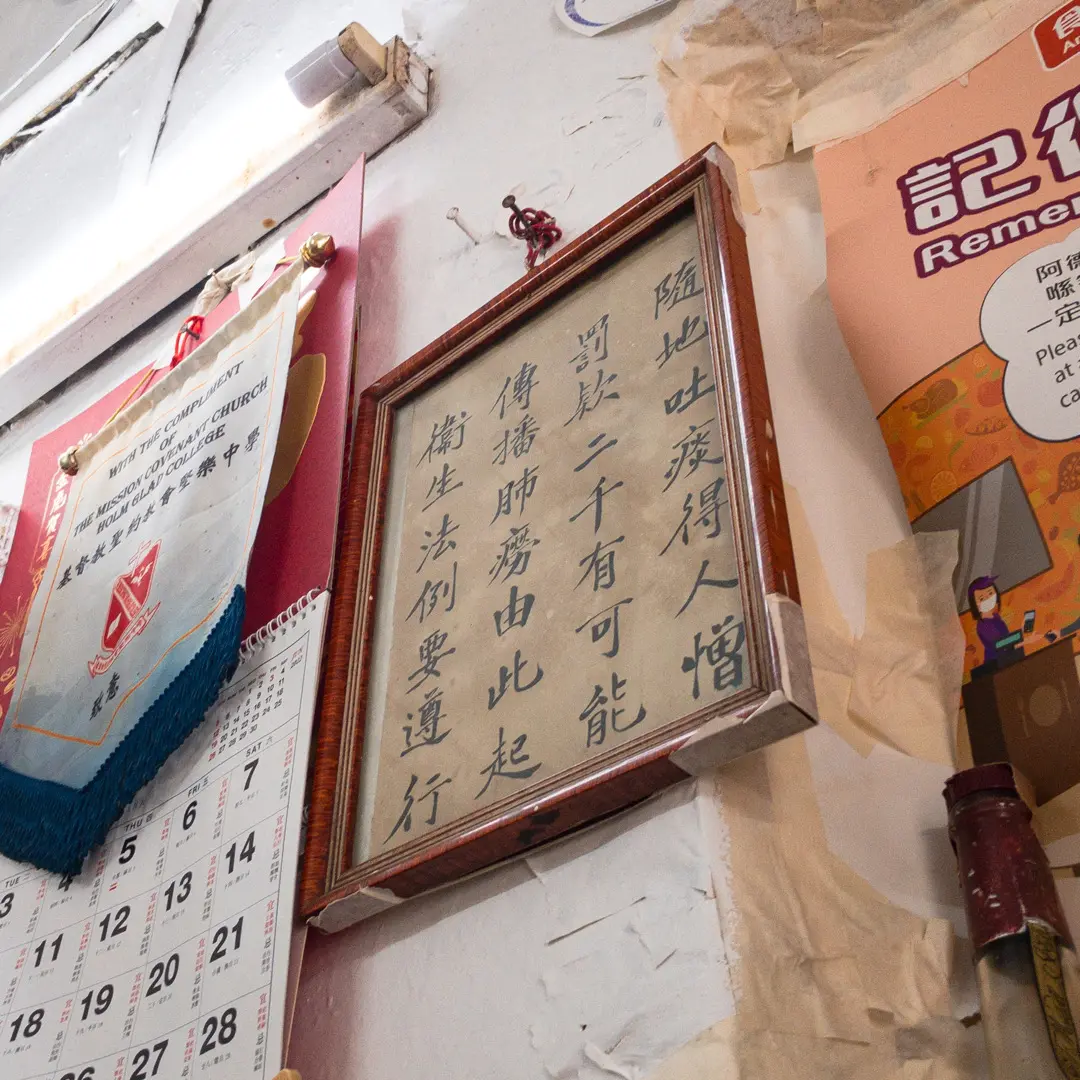 WITH THE COMPLIMENT
OF
THE MISSION COVENANT CHURCH
HOLM GLAD COLLEGE
基督教聖約教會堅樂中學
敬意
隨地吐痰得人憎
罰欵二千有可能
傳播肺癆由此起
衛生法例要遵行
TUE THU 四 FRI 五 SAT 六
3 4 5 6 7
11 12 13 14
18 19 20 21
26 27 28
食
記
Remem
阿
喺
一定
Pleas
at
ca